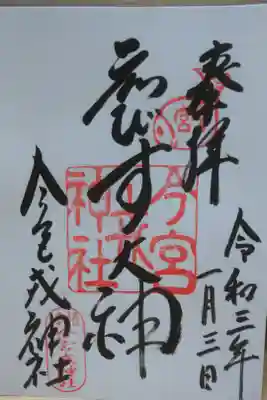 奉拝
令和三年
一月三日
ゑびす大神
今宮戎神社
今宮
戎
神社